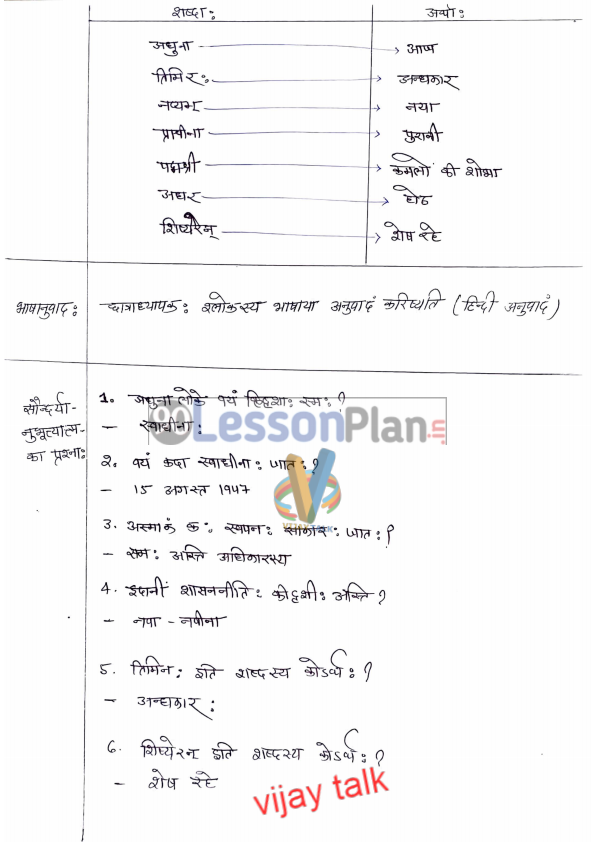 शब्दा: अर्थो:
अधुना आज
तिमिर: अन्धकार
नव्यम नया
प्राचीना पुरानी
पद्मश्री कमलों की शोभा
अधर होठ
शिष्येरन् शेष रहे
भाषानुवाद: छात्राध्यापक: श्लोकस्य भाषाया अनुवादं करिष्यति (हिन्दी अनुवादं)
सौन्दर्या-
नुभूत्यात्म-
का प्रश्ना:
1. अधुना लोके वयं किदृशा: स्म: ?
- स्वाधीना:
LessonPlan.in
2. वयं कदा स्वाधीना: जात: ?
- 15 अगस्त 1947
VIJAY TALK
3. अस्माकं क: स्वपन: साकार: जात: ?
- सम: अस्ति अधिकारस्य
4. इदानीं शासननीति: कीदृशी: अस्ति ?
- नवा - नवीना
5. तिमिन: इति शब्दस्य कोऽर्थ: ?
- अन्धकार:
6. शिष्येरन इति शब्दस्य कोऽर्थ: ?
- शेष रहे
vijay talk